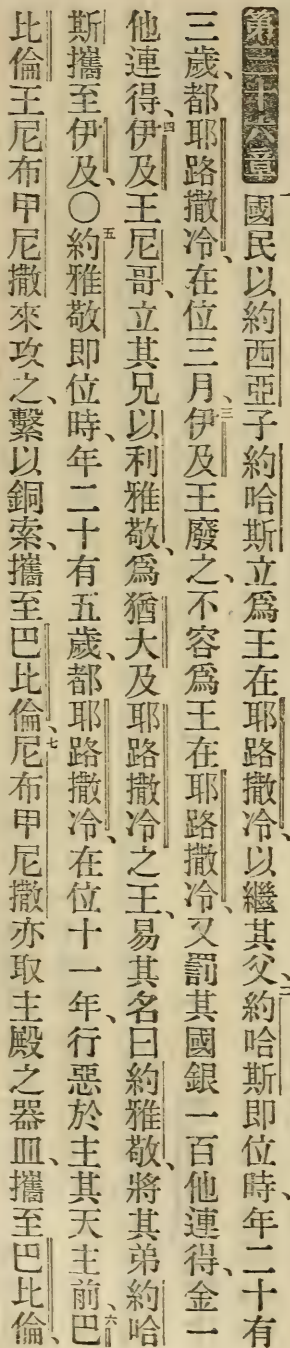 第三十六章 一國民以約西亞子約哈斯立爲王在耶路撒冷、以繼其父、二約哈斯即位時、年二十有
三歲、都耶路撒冷、在位三月、三伊及王廢之、不容爲王在耶路撒冷、又罰其國銀一百他連得、金一
他連得、四伊及王尼哥、立其兄以利雅敬、爲猶大及耶路撒冷之王、易其名曰約雅敬、將其弟約哈
斯攜至伊及、○五約雅敬即位時、年二十有五歲、都耶路撒冷、在位十一年、行惡於主其天主前、六巴
比倫王尼布甲尼撒來攻之、繫以銅索、攜至巴比倫、七尼布甲尼撒亦取主殿之器皿、攜至巴比倫、